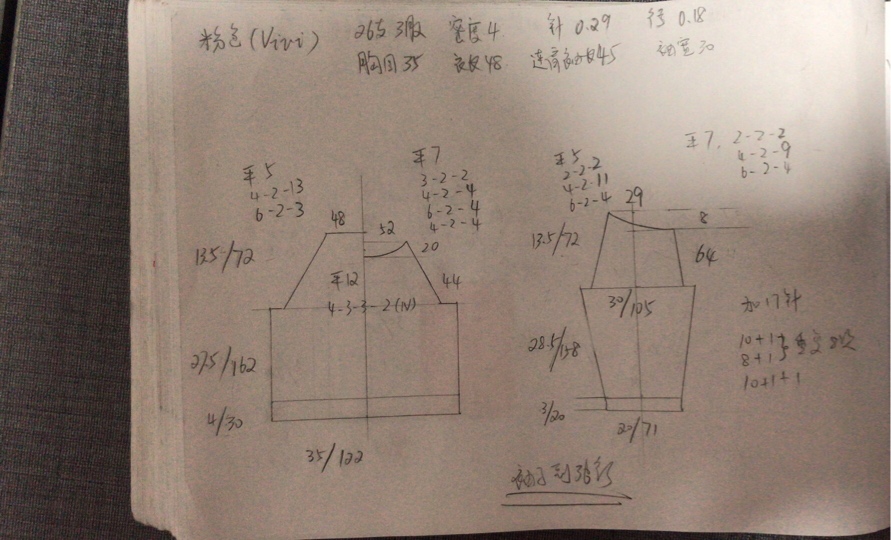 粉色(Vivi) 26支3股 密度4 针0.29 行0.18
胸围35 衣长48 连肩袖长45 袖宽30
平5
4-2-13
6-2-3
平7
3-2-2
4-2-4
6-2-4
4-2-4
平5
2-2-2
4-2-11
6-2-4
平7, 2-2-2
4-2-9
6-2-4
48
52
20
13.5/72
平12
44
4-3-3-2(N)
27.5/162
4/30
35/122
29
8
13.5/72
64
30/105
加17针
28.5/158
10+1+
8+1+
10+1+1
3/20
20/71